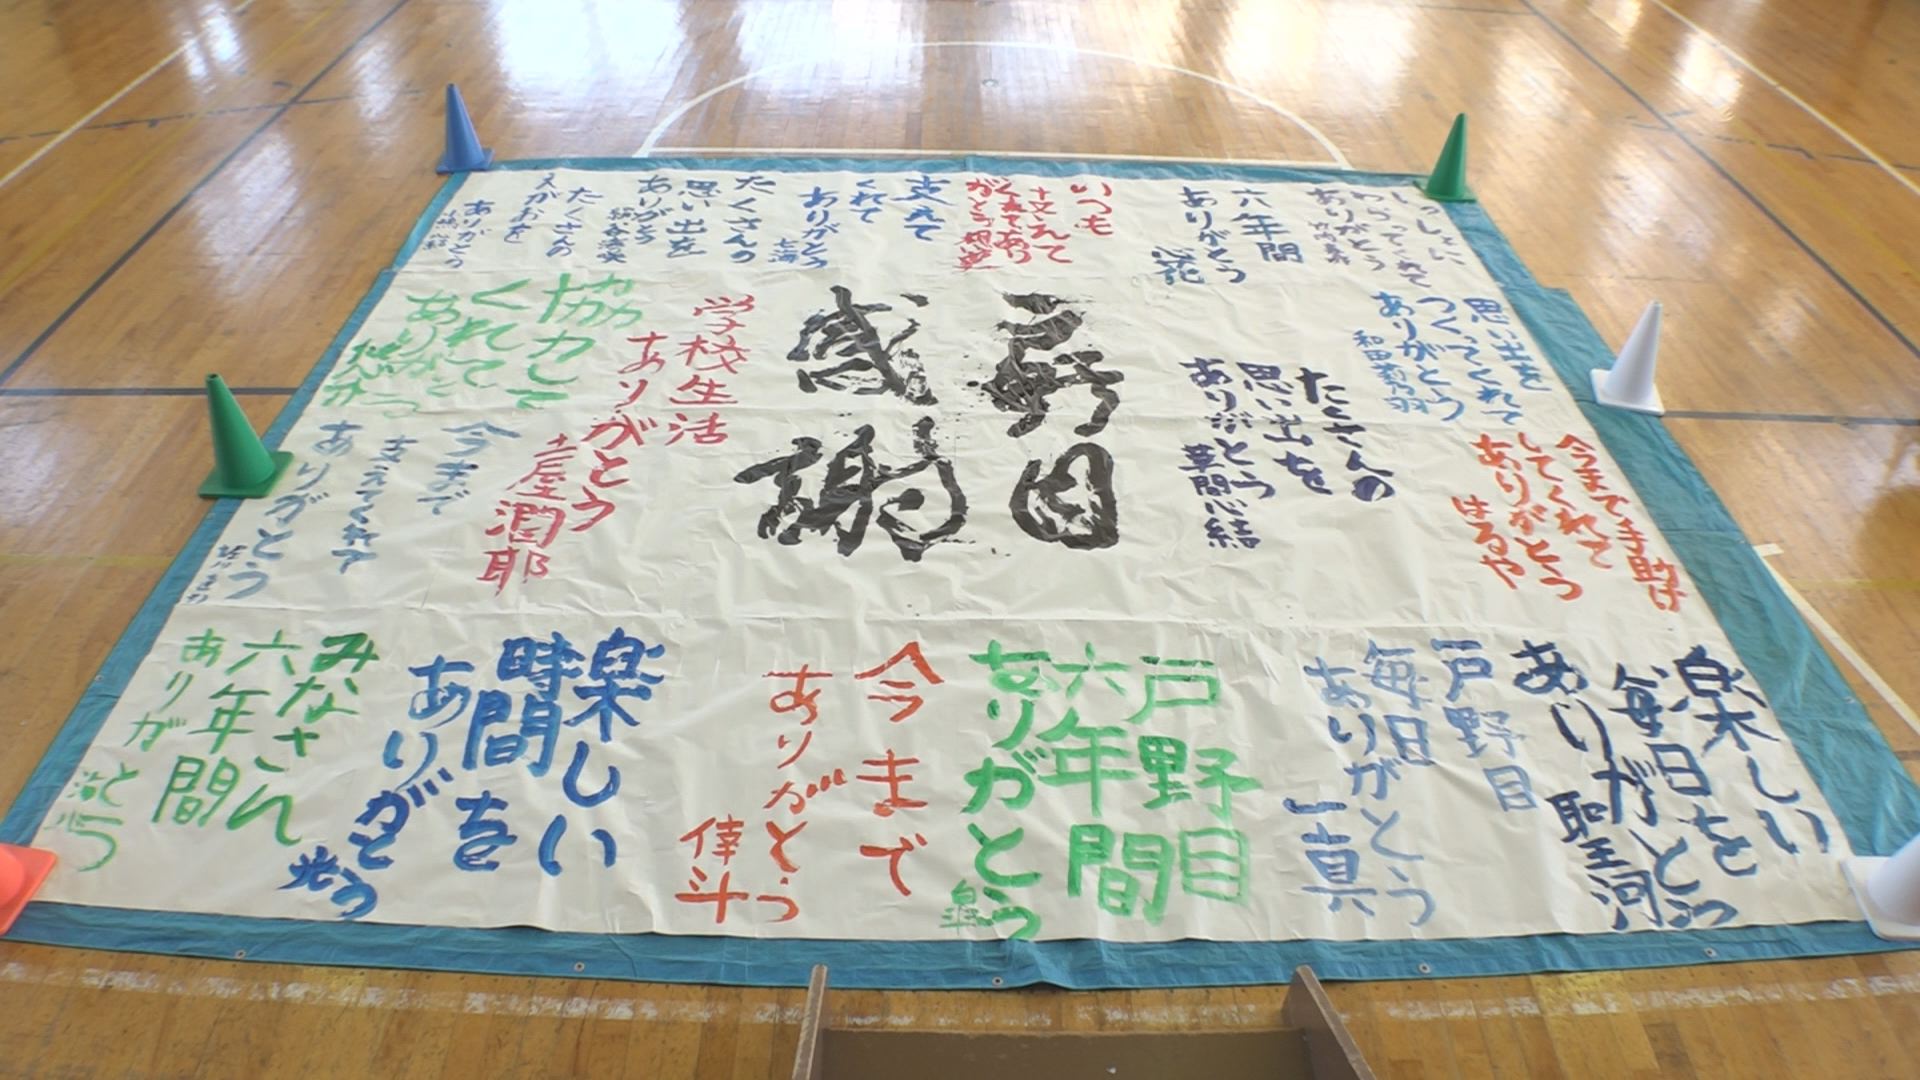 戸野目
感謝
いっしょに
わらってくれて
ありがとう
六年間
ありがとう
心花
いつも
支えて
くれてあり
がとう
支えて
くれて
ありがとう
七海
たくさんの
思い出を
ありがとう
たくさんの
えがおを
ありがとう
思い出を
つくってくれて
ありがとう
和田莉乃羽
たくさんの
思い出を
ありがとう
草間心結
今まで手助け
してくれて
ありがとう
はるや
学校生活
ありがとう
土屋潤耶
協力して
くれて
ありがとう
今まで
支えてくれて
ありがとう
楽しい
毎日を
ありがとう
聖河
戸野目
毎日
ありがとう
一真
戸野目
六年間
ありがとう
今まで
ありがとう
倖斗
楽しい
時間を
ありがとう
光
みなさん
六年間
ありがとう